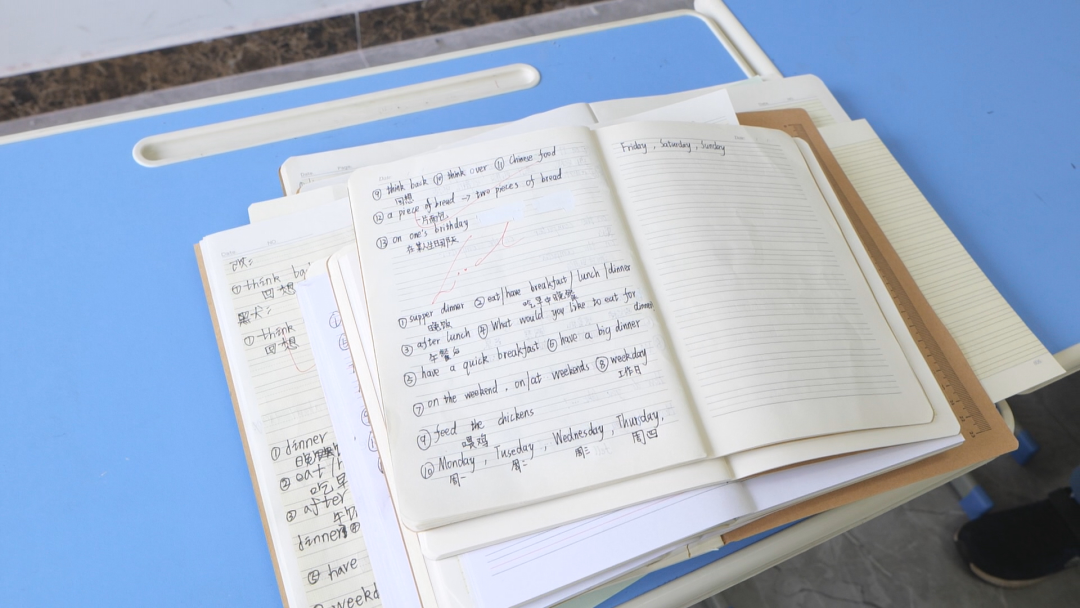 ⑨ think back ⑩ think over ⑪ Chinese food
回想
⑫ a piece of bread → two pieces of bread
一片面包
⑬ on one's brithday
在某人生日那天
① supper dinner ② eat/have breakfast/lunch/dinner
晚饭 吃早中晚餐
③ after lunch ④ What would you like to eat for dinner
午餐后
⑤ have a quick breakfast ⑥ have a big dinner
⑦ on the weekend . on/at weekends ⑧ weekday
工作日
⑨ feed the chickens
喂鸡
⑩ Monday , Tuseday , Wednesday , Thursday ,
周一 周二 周三 周四
Friday , Saturday , Sunday
改:
① think
回想
① think
回想
① dinner
② eat/
吃早
③ after
午
dinner
⑤ have
weekd